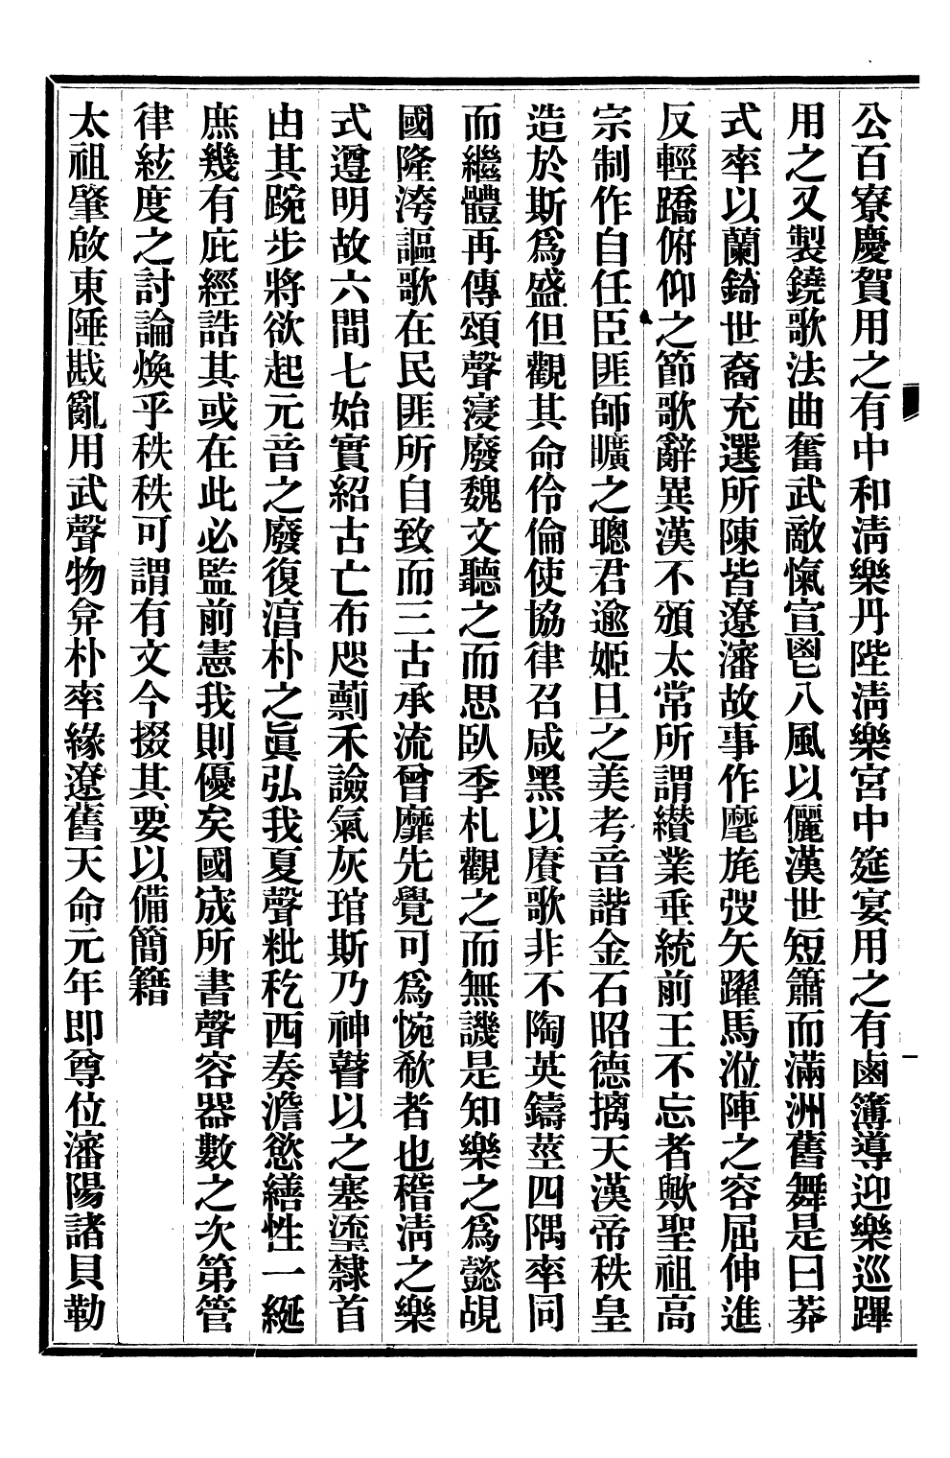 公百寮慶賀用之有中和淸樂丹陛淸樂宮中筵宴用之有鹵簿導迎樂巡蹕
用之又製鐃歌法曲奮武敵愾宣鬯八風以儷漢世短簫而滿洲舊舞是曰莽
式率以蘭錡世裔充選所陳皆遼瀋故事作麾旄弢矢躍馬涖陣之容屈伸進
反輕蹻俯仰之節歌辭異漢不頒太常所謂纘業垂統前王不忘者歟聖祖高
宗制作自任臣匪師曠之聰君逾姬旦之美考音諧金石昭德摛天漢帝秩皇
造於斯爲盛但觀其命伶倫使協律召咸黑以賡歌非不陶英鑄莖四隅率同
而繼體再傳頌聲寖廢魏文聽之而思臥季札觀之而無譏是知樂之爲懿覘
國隆洿謳歌在民匪所自致而三古承流曾靡先覺可爲惋欷者也稽淸之樂
式遵明故六間七始實紹古亡布咫蘮禾譣氣灰琯斯乃神瞽以之塞壅隸首
由其踠步將欲起元音之廢復㴑朴之眞弘我夏聲粃秺西奏澹慾繕性一綖
庶幾有庇經誥其或在此必監前憲我則優矣國宬所書聲容器數之次第管
律絃度之討論煥乎秩秩可謂有文今掇其要以備簡籍
太祖肇啟東陲戡亂用武聲物弇朴率緣遼舊天命元年即尊位瀋陽諸貝勒